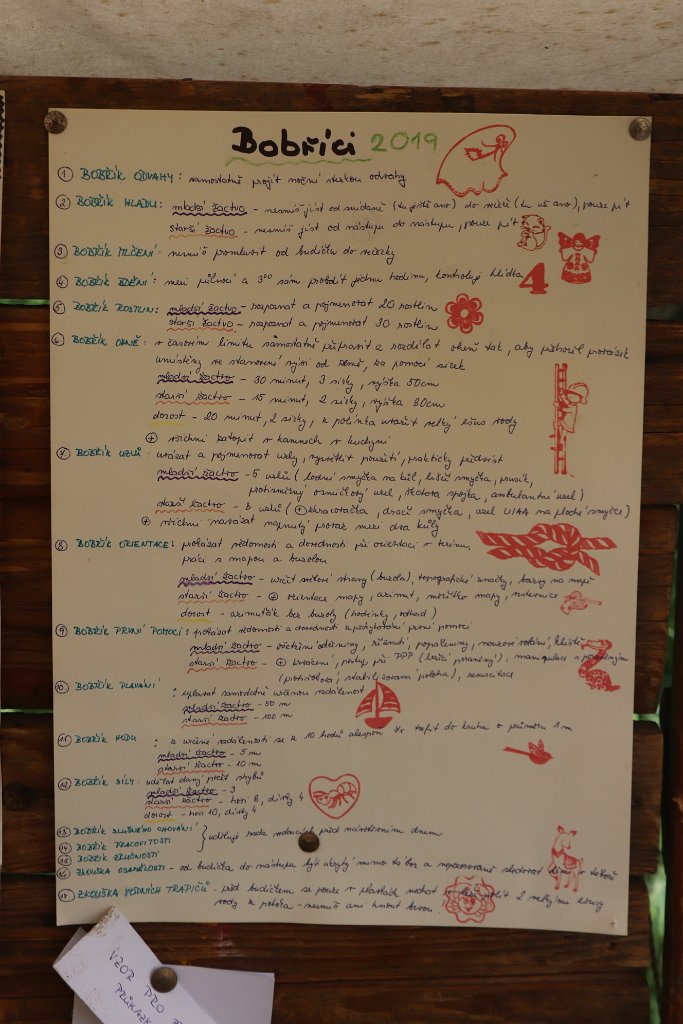 Bobříci 2019
1 BOBŘÍK ODVAHY: samostatně projít noční stezkou odvahy
2 BOBŘÍK HLADU: mladší žactvo - nesmíš jíst od snídaně (tu ještě ano) do večeře (tu už ano), pouze pít
starší žactvo - nesmíš jíst od nástupu do nástupu, pouze pít
3 BOBŘÍK MLČENÍ: nesmíš promluvit od budíčku do večerky
4 BOBŘÍK BDĚNÍ: mezi půlnocí a 3⁰⁰ sám probdít jednu hodinu, kontroluje hlídka
4
5 BOBŘÍK ROSTLIN: mladší žactvo - rozpoznat a pojmenovat 20 rostlin
starší žactvo - rozpoznat a pojmenovat 30 rostlin
6 BOBŘÍK OHNĚ: v časovém limitu samostatně připravit a rozdělat oheň tak, aby přehořel provázek
umístěný ve stanovené výši od země, za pomocí sirek
mladší žactvo - 30 minut, 3 sirky, výška 50cm
starší žactvo - 15 minut, 2 sirky, výška 80cm
dorost - 20 minut, 2 sirky, z polínka uvařit velký ešus vody
+ všichni zatopit v kamnech v kuchyni
7 BOBŘÍK UZLŮ: uvázat a pojmenovat uzly, vysvětlit použití, prakticky předvést
mladší žactvo - 5 uzlů (lodní smyčka na kůl, liščí smyčka, prusík,
protisměrný osmičkový uzel, škotová spojka, ambulantní uzel)
starší žactvo - 8 uzlů (+ zkracovačka, dračí smyčka, uzel UIAA na ploché smyčce)
+ všichni navázat napnutý provaz mezi dva kůly
8 BOBŘÍK ORIENTACE: prokázat vědomosti a dovednosti při orientaci v terénu,
práci s mapou a buzolou
mladší žactvo - určit světové strany (buzola), topografické značky, barvy na mapě
starší žactvo - + orientace mapy, azimut, měřítko mapy, vrstevnice
dorost - azimuťák bez buzoly (hodinky, odhad)
9 BOBŘÍK PRVNÍ POMOCI: prokázat vědomosti a dovednosti z poskytování první pomoci
mladší žactvo - ošetření odřeniny, říznutí, popáleniny, nouzové volání, klíště
starší žactvo - + krvácení, postup při PPP (větší poranění), manipulace s poraněným
(protišoková, stabilizovaná poloha), resuscitace
10 BOBŘÍK PLAVÁNÍ: uplavat samostatně určenou vzdálenost
mladší žactvo - 50 m
starší žactvo - 100 m
11 BOBŘÍK HODU: z určené vzdálenosti se z 10 hodů alespoň 7x trefit do kruhu o průměru 1 m
mladší žactvo - 5 m
starší žactvo - 10 m
12 BOBŘÍK SÍLY: udělat daný počet shybů
mladší žactvo - 3
starší žactvo - hoši 8, dívky 4
dorost - hoši 10, dívky 4
13 BOBŘÍK SLUŠNÉHO CHOVÁNÍ
14 BOBŘÍK PRACOVITOSTI } uděluje rada vedoucích před návštěvním dnem
15 BOBŘÍK ZRUČNOSTI
16 ZKOUŠKA OSAMĚLOSTI - od budíčku do nástupu být ukrytý mimo tábor a nepozorovaně sledovat dění v táboře
17 ZKOUŠKA VODNÍCH TRAPIČŮ - před budíčkem se pouze v plavkách nechat polít 2 velkými ešusy
vody z potoka - nesmíš ani hnout brvou
VZOR PRO
PRŮKAZK